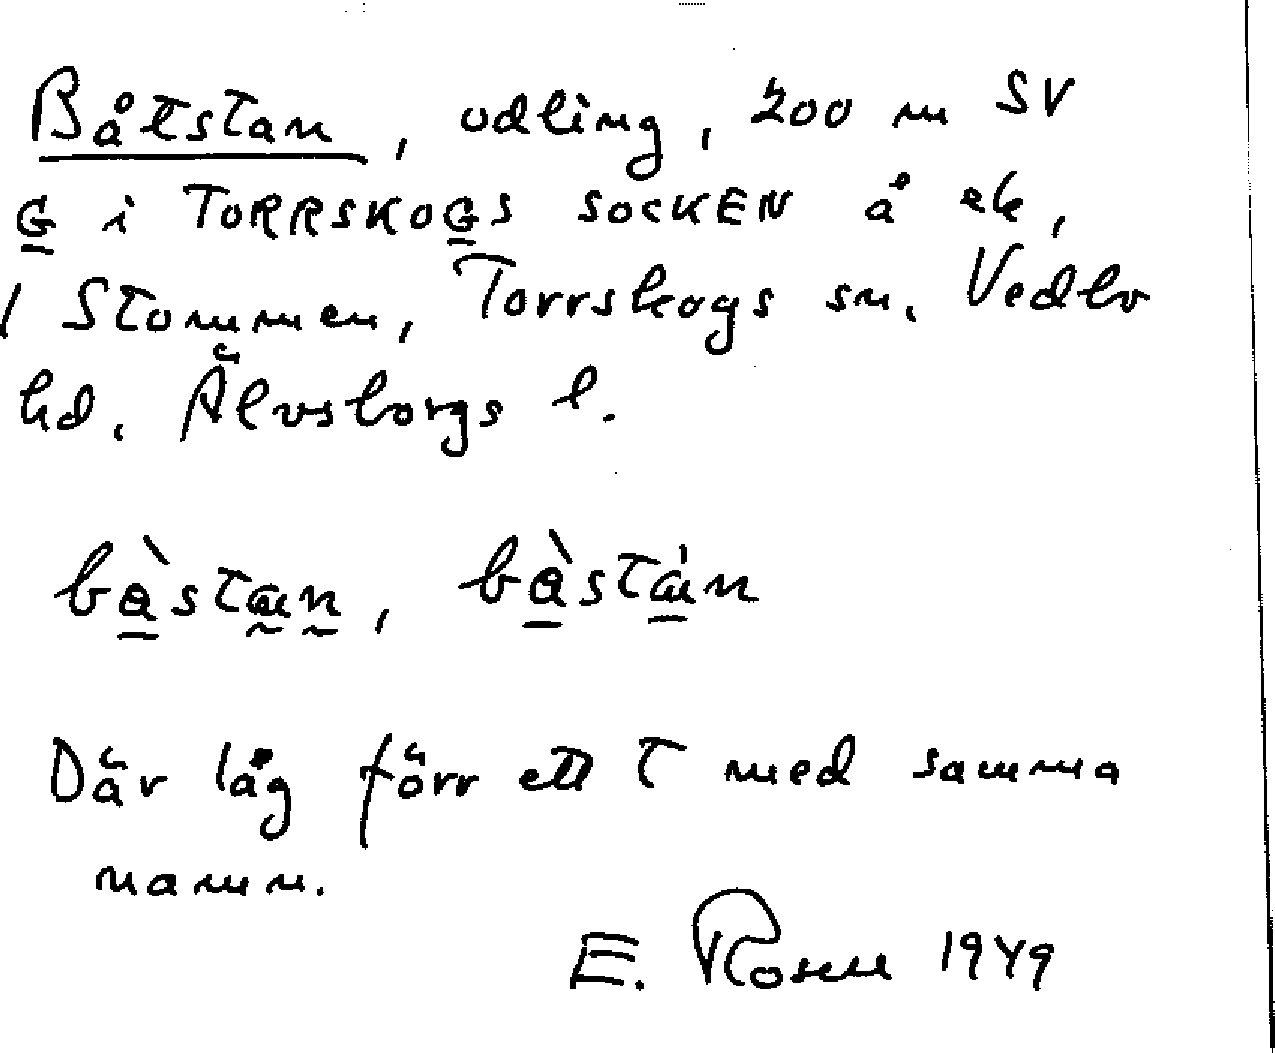 Båtstan, odling, 200 m SV
G i TORRSKOGS SOCKEN å ek,
/ Stommen, Torrskogs sn. Vedbo
hd. Älvsborgs l.
bàstan, bàstán
Där låg förr ett T med samma
namn.
E. Rosell 1949